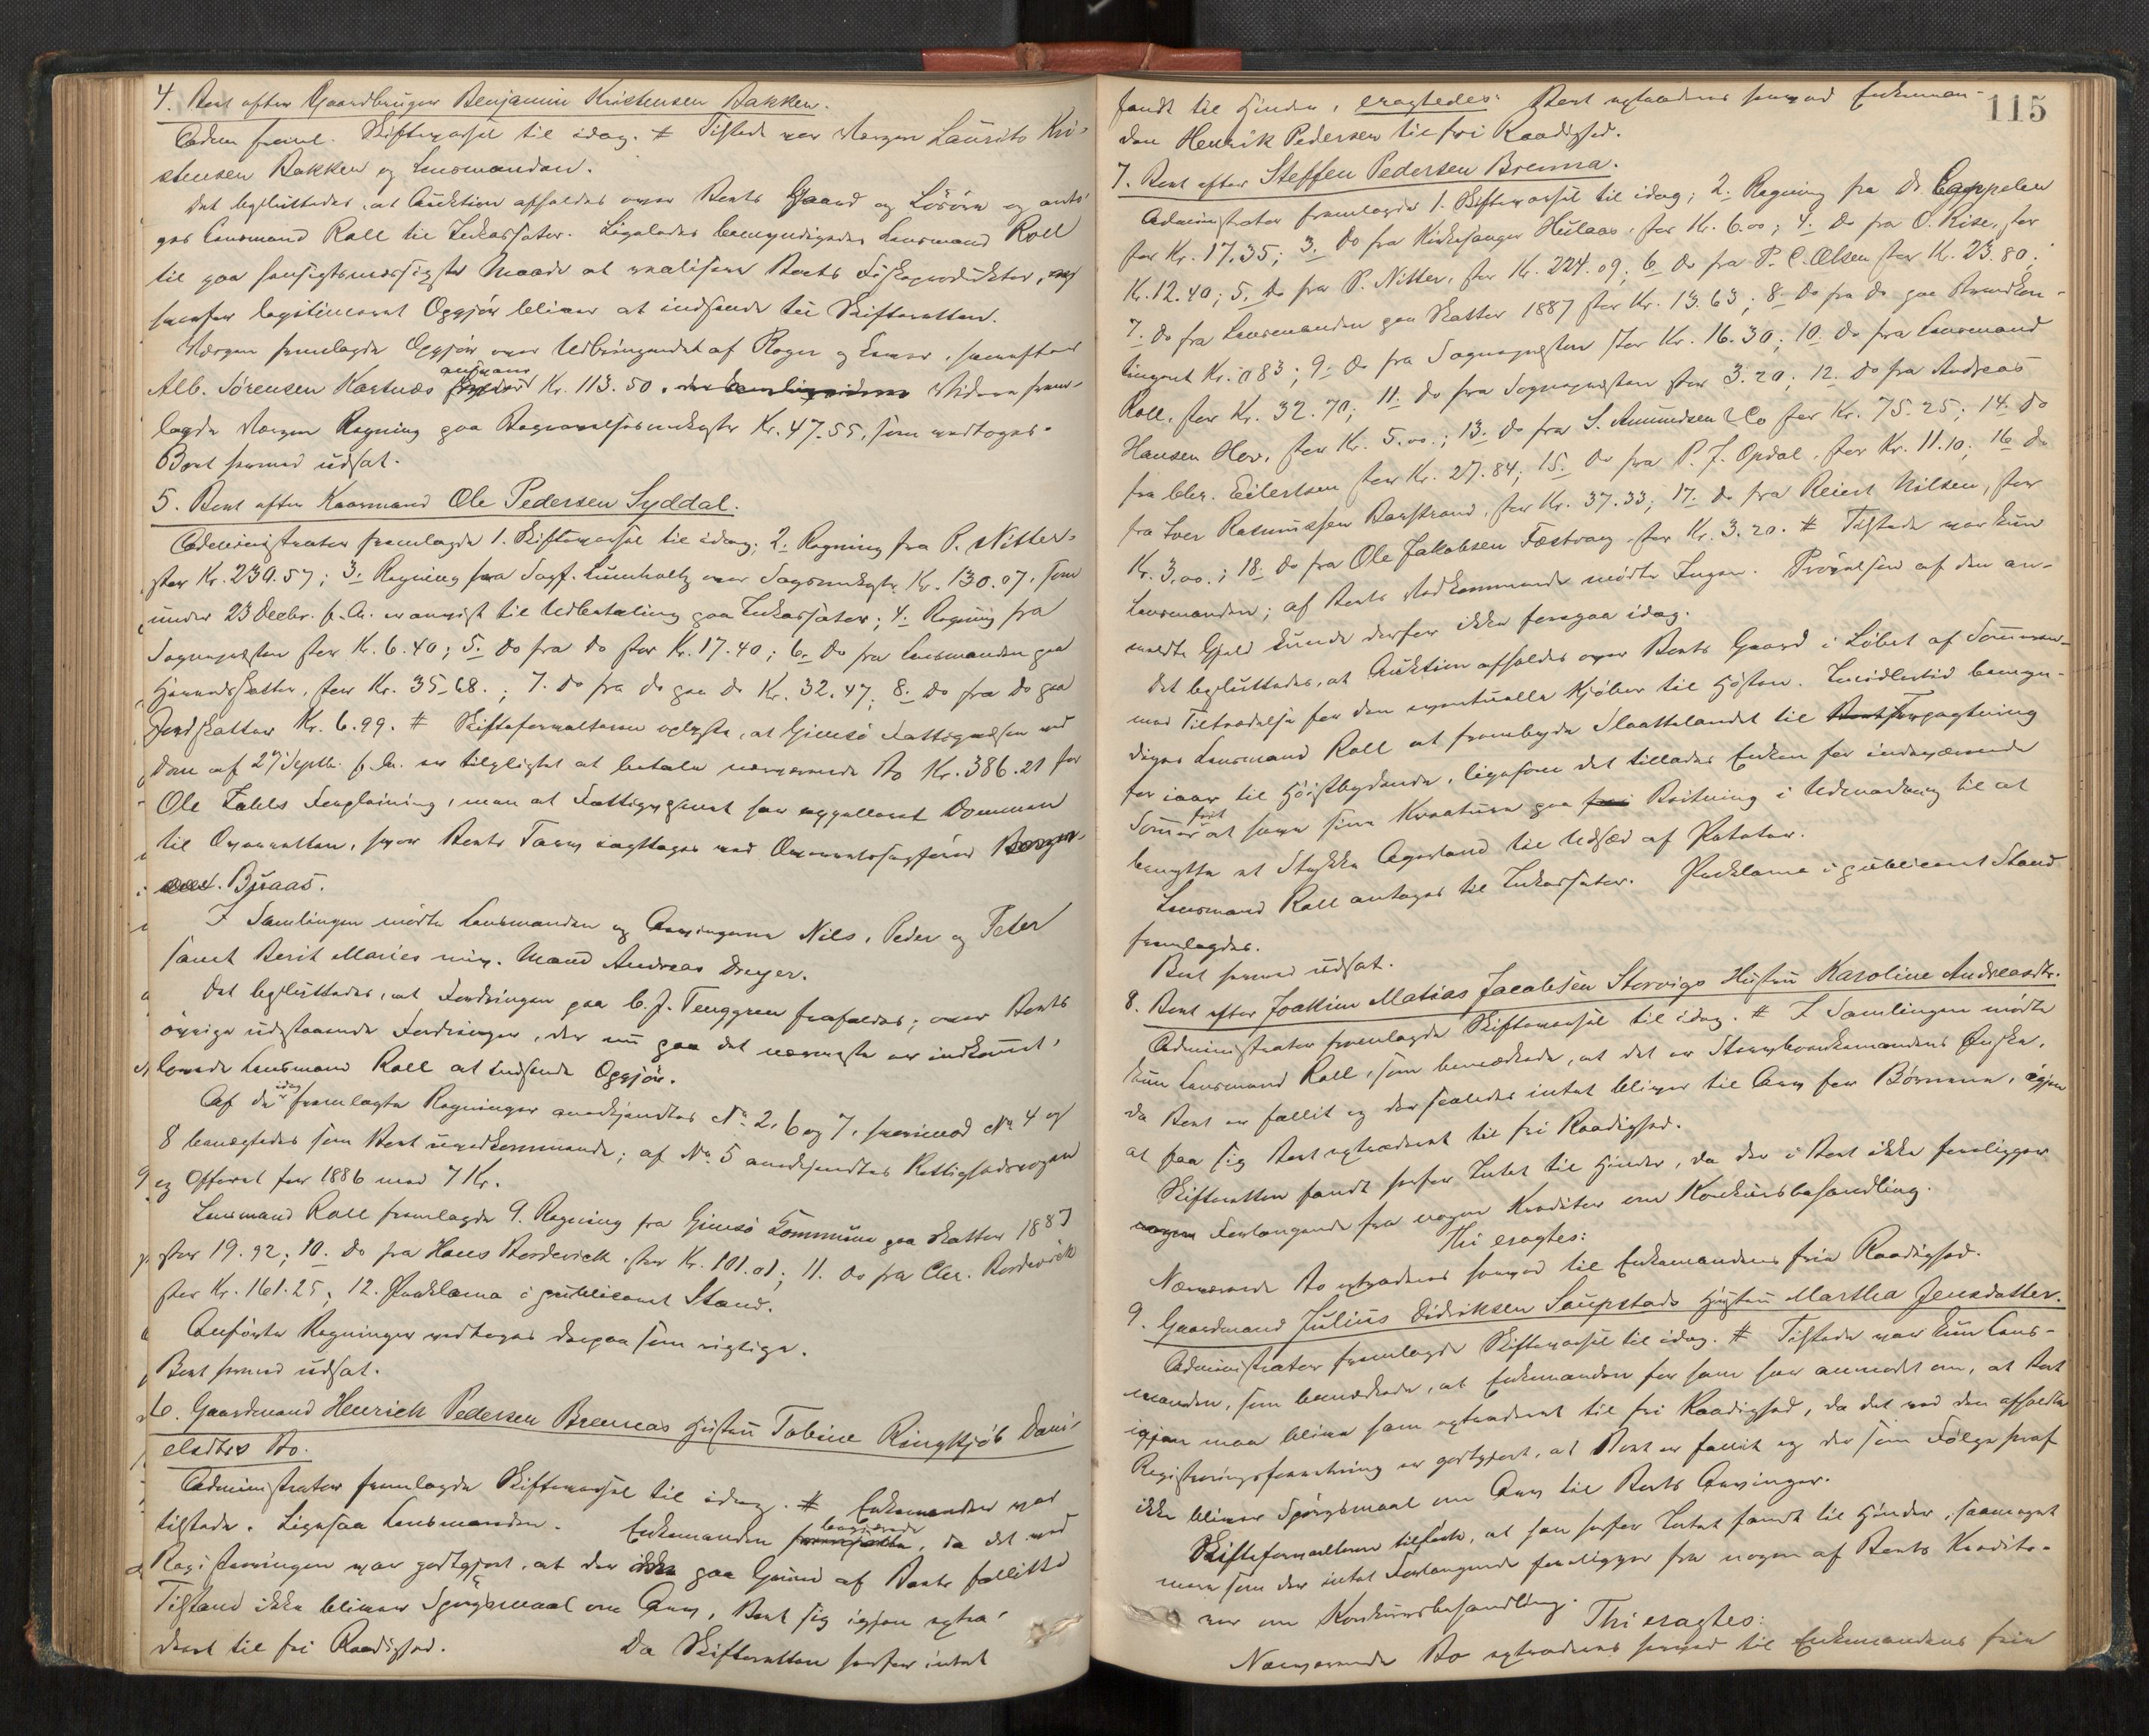 4. Boet efter Gaardbruger Benjamin Kristensen Bakken.
Adm. freml. Skiftevarsel til idag. # Tilstede var Værgen Laurits Kri-
stensen Bakken og Lensmanden.
Det besluttedes, at Auktion afholdes over Boets Gaard og Løsøre og anto-
ges Lensmand Roll til Inkassator. Ligeledes bemyndigedes Lensmand Roll
til paa hensigtsmæssigste Maade at realisere Boets Fiskeprodukter, og
hvorfor legitimeret Opgjør bliver at indsende til Skifteretten.
Værgen fremlagde Opgjør over Udbringendet af Rogn og Lever, hvorefter
Alb. Sørensen Kartnæs Kr. 113.50. Videre frem-
lagde Værgen Regning paa Begravelsesomkostn. Kr. 47.55, som vedtoges.
Boet hermed udsat.
5. Boet efter Kaarmand Ole Pedersen Syddal.
Administrator fremlagde 1. Skiftevarsel til idag; 2. Regning fra P. Nitter
stor Kr. 230.57; 3. Regning fra Sagf. Lumholtz over Sagsomkostn. Kr. 130.07, som
under 23 Decbr. f. A. er anvist til Udbetaling paa Inkassator; 4. Regning fra
Sognepresten stor Kr. 6.40; 5. Do fra Do stor Kr. 17.40; 6. Do fra Lensmanden paa
Herredsskatter, stor Kr. 35.68.; 7. Do fra do paa do Kr. 32.47; 8. Do fra do paa
Jordskatter Kr. 6.99. # Skifteforvalteren oplyste, at Gimsø Fattigvæsen ved
Dom af 27 Septb. f. A. er tilpligtet at betale nærværende Bo Kr. 386.21 for
Ole Fahls Forpleining, men at Fattigvæsenet har appelleret Dommen
til Overretten, hvor Boets Tarv iagttages ved Overretssagfører
Buaas.
I Samlingen mødte Lensmanden og Arvingerne Nils, Peder og Peter
samt Berit Maries Mand Andreas Dreyer.
Det besluttedes, at Fordringen paa C. J. Tenggren frafaldes; over Boets
øvrige udstaaende Fordringer, der nu paa det nærmeste er indkomst,
lovede Lensmand Roll at indsende Opgjør.
Af de idag fremlagte Regninger anerkjendtes No 2, 6 og 7, hvorimod No 4 og
8 benægtedes som Boet uvedkommende; af No 5 anerkjendtes Rettighedsrogn
og Offeret for 1886 med 7 Kr.
Lensmand Roll fremlagde 9. Regning fra Gimsø Kommune paa Skatter 1887
stor 19.92; 10. Do fra Hans Bordevick, stor Kr. 101.01; 11. Do fra Chr. Bordevick
stor Kr. 161.25; 12. Proklama i publiceret Stand.
Anførte Regninger vedtoges derpaa som rigtige.
Boet hermed udsat.
6. Gaardmand Henrick Pedersen Brennas Hustru Tobine Ringkjøb Dani-
elsdtrs Bo.
Administrator fremlagde Skiftevarsel til idag. # Enkemanden var
tilstede. Ligesaa Lensmanden. Enkemanden begjærede, da det ved
Registreringen var godtgjort, at der paa Grund af Boets fallitte
Tilstand ikke bliver Spørgsmaal om Arv, Boet sig igjen extra-
deret til fri Raadighed. Da Skifteretten herfor intet
115
fandt til Hinder, eragtedes: Boet extraderes herved Enkeman-
den Henrik Pedersen til fri Raadighed.
7. Boet efter Steffen Pedersen Brenna.
Administrator fremlagde 1. Skiftevarsel til idag; 2. Regning fra Dr Cappelen
stor Kr. 17.35; 3. Do fra Kirkesanger Hulaas, stor Kr. 6.00; 4. Do fra O. Rise, stor
Kr. 12.40; 5. Do fra P. Nitter, stor Kr. 224.09; 6. Do fra P. C. Olsen stor Kr. 23.80;
7. Do fra Lensmanden paa Skatter 1887 stor Kr. 13.63; 8. Do fra do paa Brandkon-
tingent Kr. 0.83; 9. Do fra Sognepresten stor Kr. 16.30; 10. Do fra Lensmand
Roll, stor Kr. 32.70; 11. Do fra Sognepresten stor 3.20; 12. Do fra Andreas
Hansen Hov, stor Kr. 5.00.; 13. Do fra S. Amundsen & Co stor Kr. 75.25; 14. Do
fra Chr. Eilertsen stor Kr. 27.84; 15. Do fra P. J. Opdal, stor Kr. 11.10; 16. Do
fra Iver Rasmussen Barstrand, stor Kr. 37.33; 17. Do fra Reiert Nilsen, stor
Kr. 3.00.; 18. Do fra Ole Jakobsen Fæstvaag stor Kr. 3.20. # Tilstede var kun
Lensmanden; af Boets Vedkommende mødte Ingen. Prøvelsen af den an-
meldte Gjeld kunde derfor ikke foregaa idag.
Det besluttedes, at Auktion afholdes over Boets Gaard i Løbet af Sommeren
med Tiltrædelse for den eventuelle Kjøber til Høsten. Imidlertid bemyn-
diges Lensmand Roll at frembyde Slaattelandet til Forpagtning
for iaar til Høistbydende, ligesom det tillades Enken for indeværende
Sommer frit at have sine Kreature paa Beitning i Udmarken og til at
benytte et Stykke Agerland til Udsæd af Poteter.
Lensmand Roll antages til Inkassator. Proklama i publiceret Stand
fremlagdes.
Boet hermed udsat.
8. Boet efter Joakim Matias Jacobsen Storvigs Hustru Karoline Andreasdtr.
Administrator fremlagde Skiftevarsel til idag. # I Samlingen mødte
kun Lensmand Roll, som bemærkede, at det er Stervboenkemandens Ønske,
da Boet er fallit og der saaledes intet bliver til Arv for Børnene, igjen
at faa sig Boet extraderet til fri Raadighed.
Skifteretten fandt herfor Intet til Hinder, da der i Boet ikke foreligger
Forlangende fra nogen Kreditor om Konkursbehandling.
Thi eragtes:
Nærværende Bo extraderes herved til Enkemandens frie Raadighed.
9. Gaardmand Julius Didriksen Saupstads Hustru Martha Jensdatter.
Administrator fremlagde Skiftevarsel til idag. # Tilstede var kun Lens-
manden, som bemærkede, at Enkemanden for ham har anmodet om, at Boet
igjen maa blive ham extraderet til fri Raadighed, da det ved den afholdte
Registreringsforretning er godtgjort, at Boet er fallit og der som Følge heraf
ikke bliver Spørgsmaal om Arv til Boets Arvinger.
Skifteforvalteren tilførte, at han herfor Intet fandt til Hinder, saameget
mere som der intet Forlangende foreligger fra nogen af Boets Kredito-
rer om Konkursbehandling. Thi eragtes:
Nærværende Bo extraderes herved til Enkemandens frie